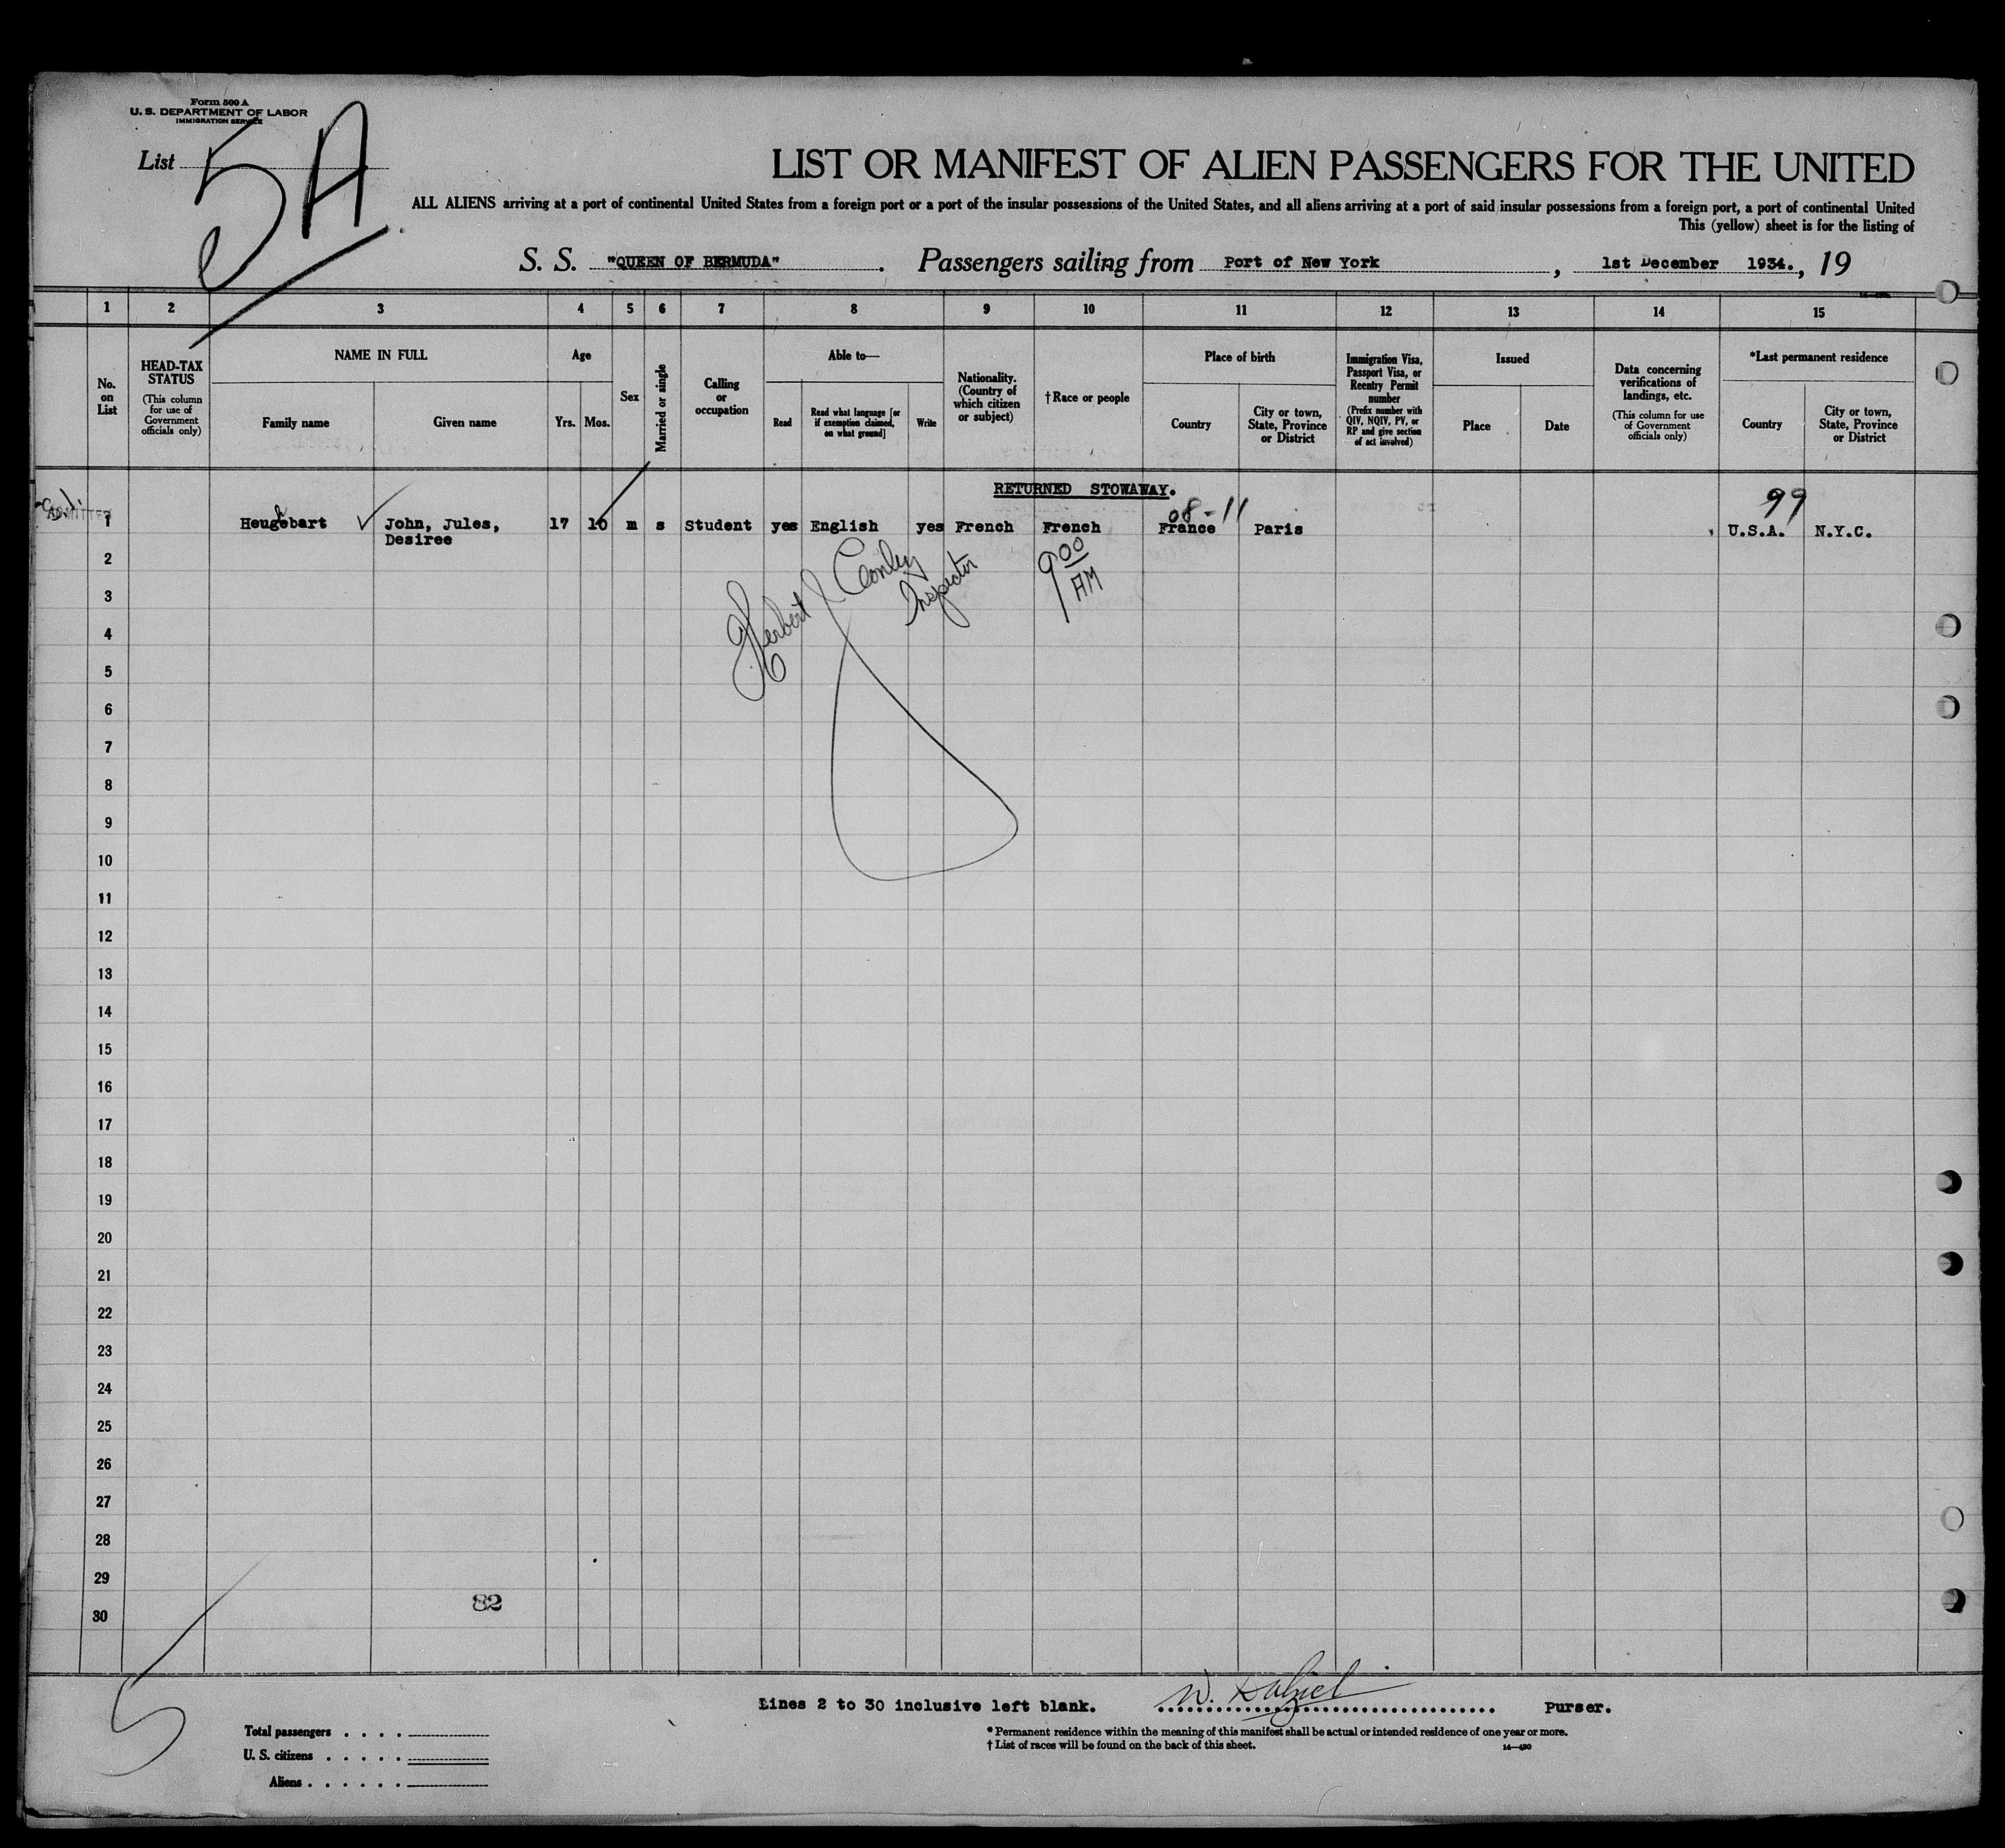 Form 500 A
U. S. DEPARTMENT OF LABOR
IMMIGRATION SERVICE
List 5A
LIST OR MANIFEST OF ALIEN PASSENGERS FOR THE UNITED
ALL ALIENS arriving at a port of continental United States from a foreign port or a port of the insular possessions of the United States, and all aliens arriving at a port of said insular possessions from a foreign port, a port of continental United
This (yellow) sheet is for the listing of
S. S. "QUEEN OF BERMUDA". Passengers sailing from Port of New York, 1st December 1934., 19
1 2 3 4 5 6 7 8 9 10 11 12 13 14 15
No. on List
HEAD-TAX STATUS
(This column for use of Government officials only)
NAME IN FULL
Family name
Given name
Age
Yrs. Mos.
Sex
Married or single
Calling or occupation
Able to—
Read
Read what language [or if exemption claimed, on what ground]
Write
Nationality. (Country of which citizen or subject)
†Race or people
Place of birth
Country
City or town, State, Province or District
Immigration Visa, Passport Visa, or Reentry Permit number
(Prefix number with QIV, NQIV, PV, or RP and give section of act involved)
Issued
Place
Date
Data concerning verifications of landings, etc.
(This column for use of Government officials only)
*Last permanent residence
Country
City or town, State, Province or District
RETURNED STOWAWAY.
08-11
99
ADMITTED
1 Heugebart John, Jules, 17 10 m s Student yes English yes French French France Paris U.S.A. N.Y.C.
Desiree
Herbert J Conley
Inspector
9 00 AM
2
3
4
5
6
7
8
9
10
11
12
13
14
15
16
17
18
19
20
21
22
23
24
25
26
27
28
29
82
30
5
Lines 2 to 30 inclusive left blank. W. Purser.
Total passengers
U. S. citizens
Aliens
* Permanent residence within the meaning of this manifest shall be actual or intended residence of one year or more.
† List of races will be found on the back of this sheet.
14—430